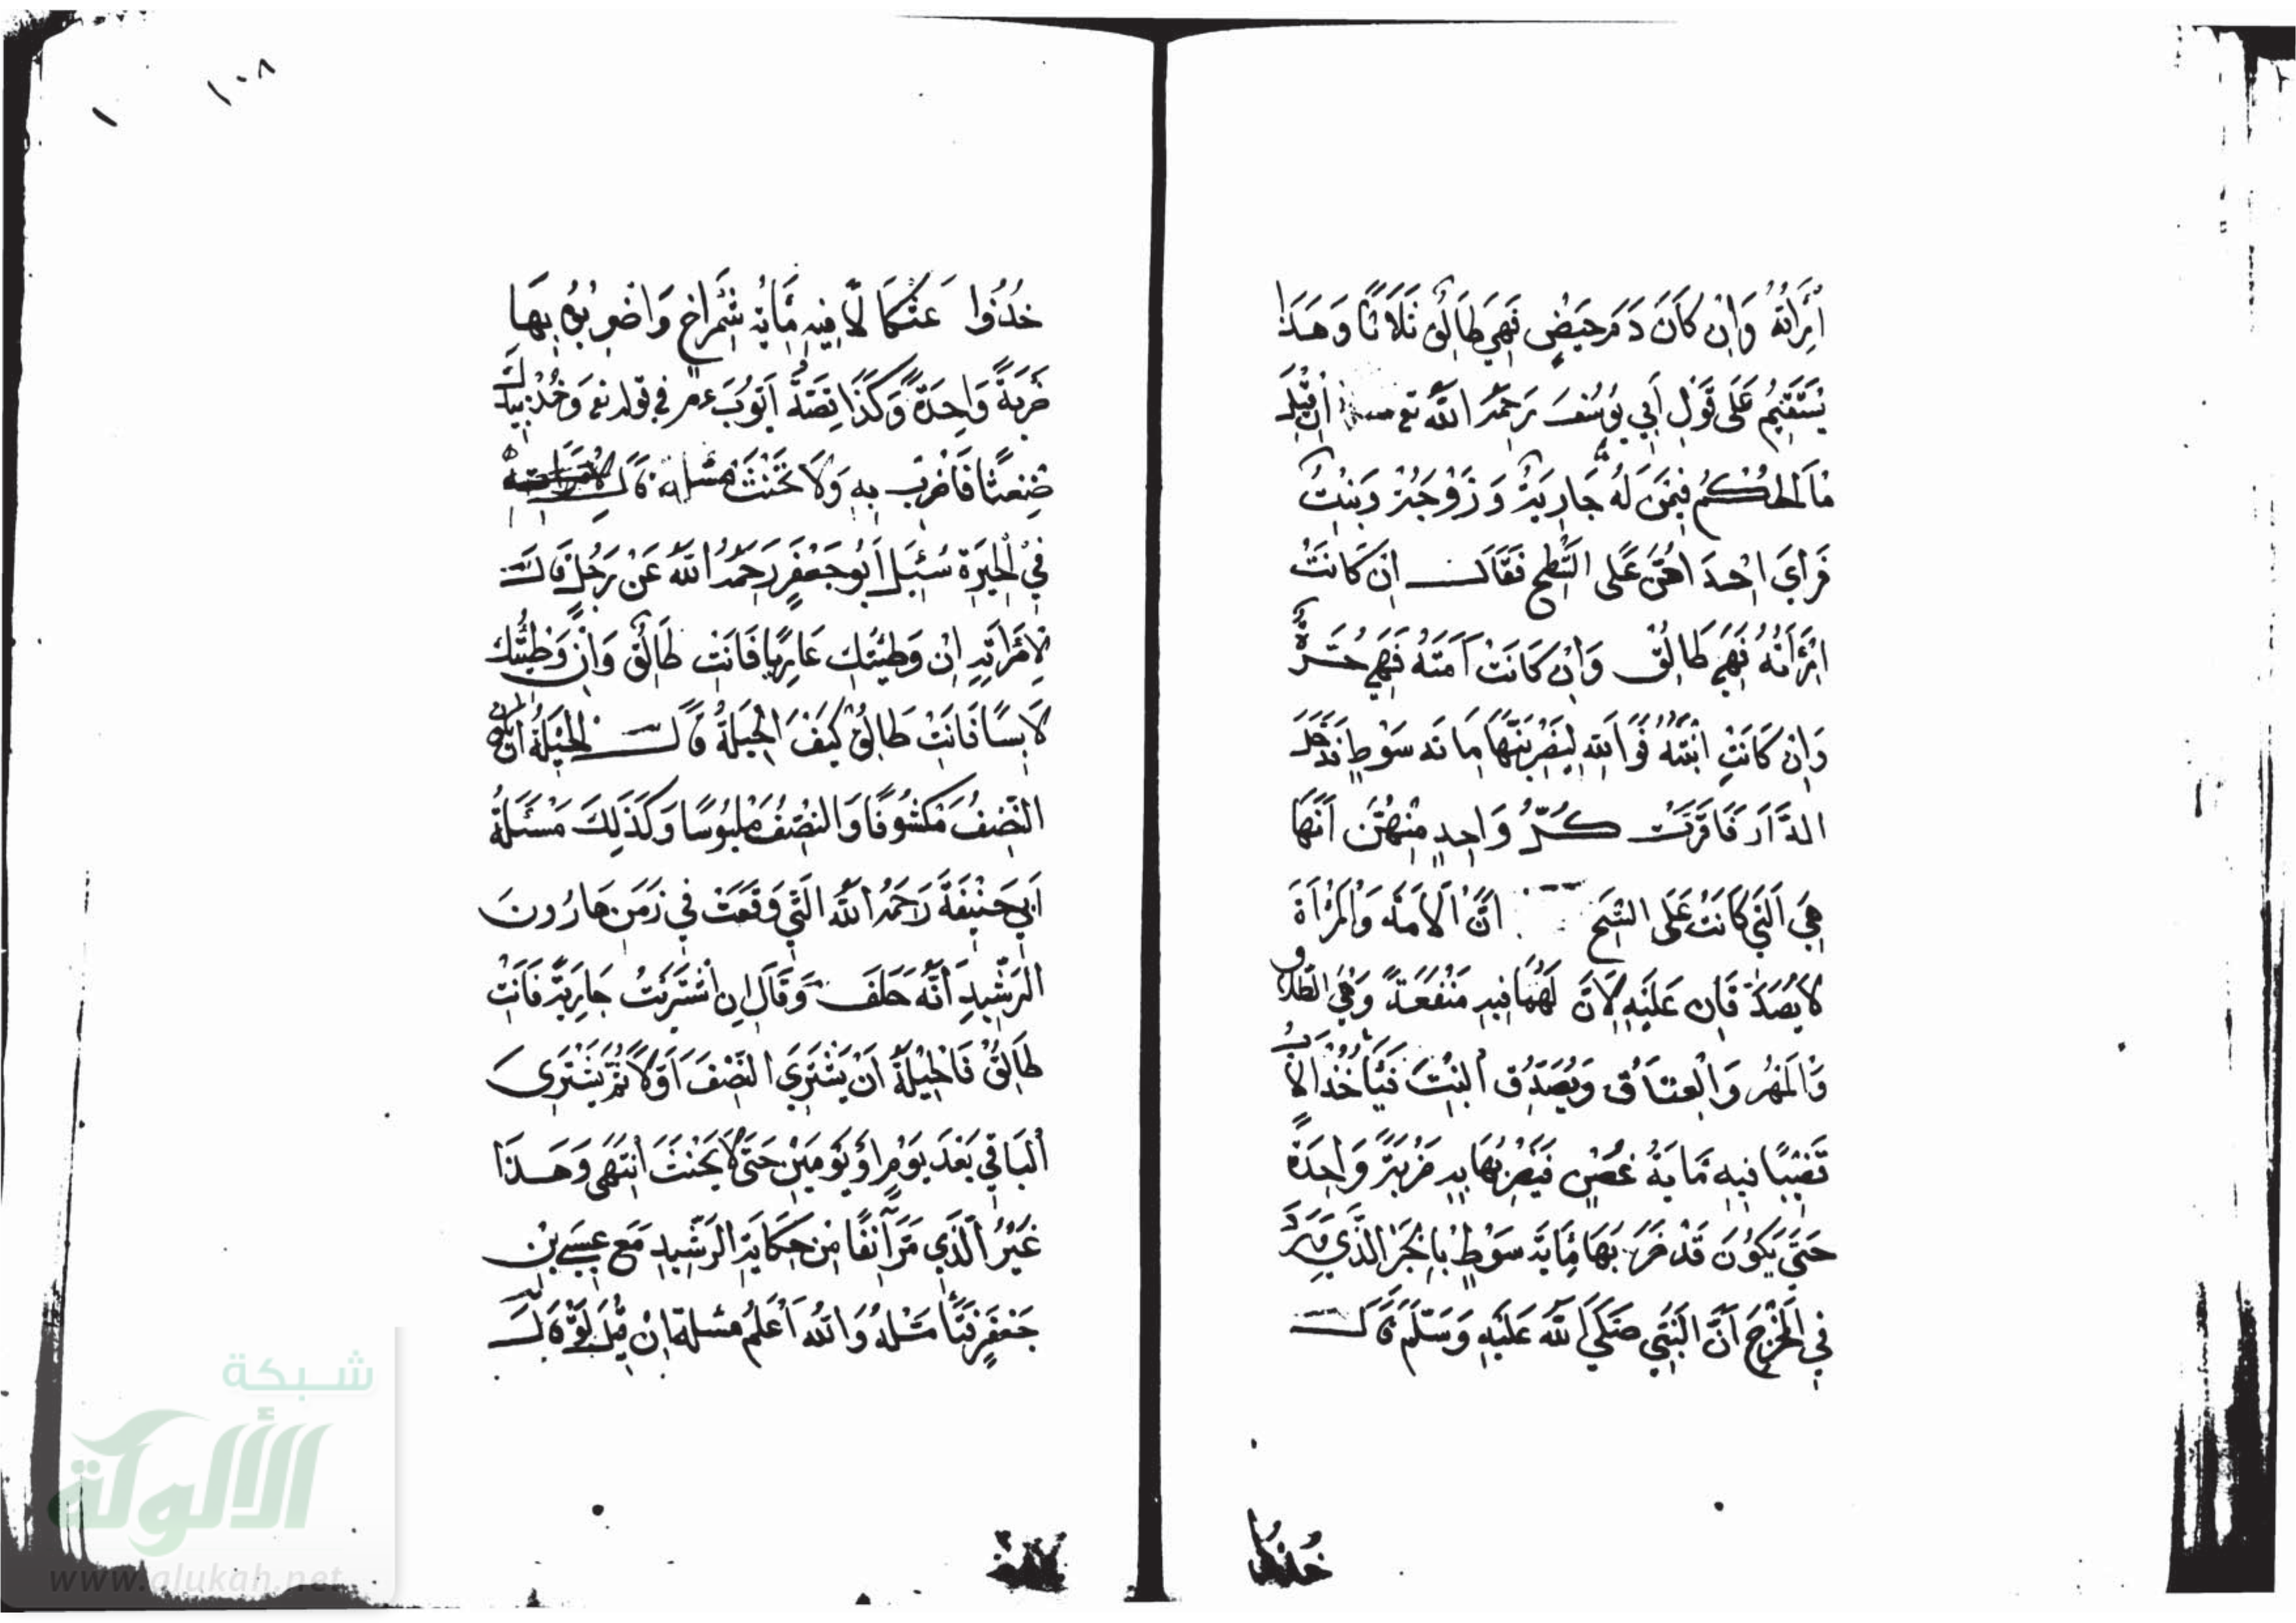 اَمْرَأتُهُ وَاِنْ كَانَ دَمَ حَيْضٍ فَهِيَ طَالِقٌ ثَلَاثًا وَهَذَا
يَسْتَقِيمُ عَلَى قَوْلِ أَبِي يُوسُفَ رَحِمَهُ اللّٰه تع اِنْ قِيْلَ
مَا الْحُكْمُ فِيمَنْ لَهُ جَارِيَةٌ وَزَوْجَةٌ وَبِنْتٌ
فَرَأيَ اِحْدَاهُنَّ عَلَى السَّطْحِ فَقَالَ اِنْ كَانَتْ
امْرَأتُهُ فَهِيَ طَالِقٌ وَاِنْ كَانَتْ اَمَتَهُ فَهِيَ حُرَّةٌ
وَاِنْ كَانَتْ ابْنَتَهُ فَوَاللّٰهِ لَيَضْرِبَنَّهَا مِائة سَوْطٍ فَدَخَلَ
الدَّارَ فَاَقَرَّتْ كُلُّ وَاحِدٍ مِنْهُنَّ اَنَّهَا
هِيَ الَّتِي كَانَتْ عَلَى السَّطح انَّ الاَمَة وَالْمَرْاَةَ
لَا يُصَدَّقَانِ عَلَيْهِ لِاَنَّ لَهُمَا فِيهِ مَنْفَعَةً وَهِيَ الطَّلَاق
وَالْمَهْرُ وَالْعِتَاقُ وَيُصَدِّقُ الْبِنْتَ فَيَأخُذُ الْأَبُ
قَضِيبًا فِيهِ مَايَةُ غُصْنٍ فَيَضْرِبُهَا بِهِ ضَرْبَةً وَاحِدَةً
حَتَّى يَكُونَ قَدْ ضَرَبَهَا مِايَةَ سَوْطٍ بِالْخَبَرِ الَّذِي وَرَدَ
فِي الْمَخْرَجِ اَنَّ النَّبِيَّ صَلَّى اللّٰه عَلَيْهِ وَسَلَّمَ قَالَ
خذوا
خُذُوا عَثْكَالًا فِيهِ مِايَةُ شِمْرَاخٍ وَاضْرِبُوهُ بِهَا
ضَرْبَةً وَاحِدَةً وَكَذَا قِصَّةُ اَيُّوبَ عم فِي قوله تع وَخُذْ بِيَدِكَ
ضِغْثًا فَاضْرِبْ بِهِ وَلَا تَحْنَثْ مسئلة قَالَ
فِي الْحِيرَةِ سُئِلَ اَبُو جَعْفَرٍ رَحِمَهُ اللّٰه عَنْ رَجُلٍ قَالَ
لِامْرَاَتِهِ اِنْ وَطِئْتُكِ عَارِيًا فَانْتِ طَالِقٌ وَاِنْ وَطِئْتُكِ
لَابِسًا فَانْتِ طَالِقٌ كَيْفَ الْحِيلَةُ قَالَ الْحِيْلَةُ ان يكون
النِّصْفُ مَكْشُوفًا وَالنِّصْفُ مَلْبُوسًا وَكَذَلِكَ مَسْئَلَةُ
اَبِي حَنِيفَةَ رَحِمَهُ اللّٰه الَّتِي وَقَعَتْ فِي زَمَنِ هَارُونَ
الرَّشِيدِ اَنَّهُ حَلَفَ وَقَالَ اِن اشْتَرَيْتُ جَارِيَةً فَانْتِ
طَالِقٌ فَالْحِيْلَةُ اَنْ يَشْتَرِيَ النِّصْفَ اَوَّلًا ثُمَّ يَشْتَرِى
الْبَاقِي بَعْدَ يَوْمٍ اَوْ يَوْمَيْنِ حَتَّى لَا يَحْنَثَ انْتَهَى وَهَذَا
غَيْرُ الَّذِي مَرَّ آنِفًا مِنْ حِكَايَةِ الرَّشِيدِ مَعَ عِيسَى بْنِ
جَعْفَرٍ فَتَأَمَّلْهُ وَاللّٰهُ اَعْلَمُ مسئلة اِنْ قِيْلَ لَوْ قَالَ
١٠٨
شبكة
الألوكة
www.alukah.net